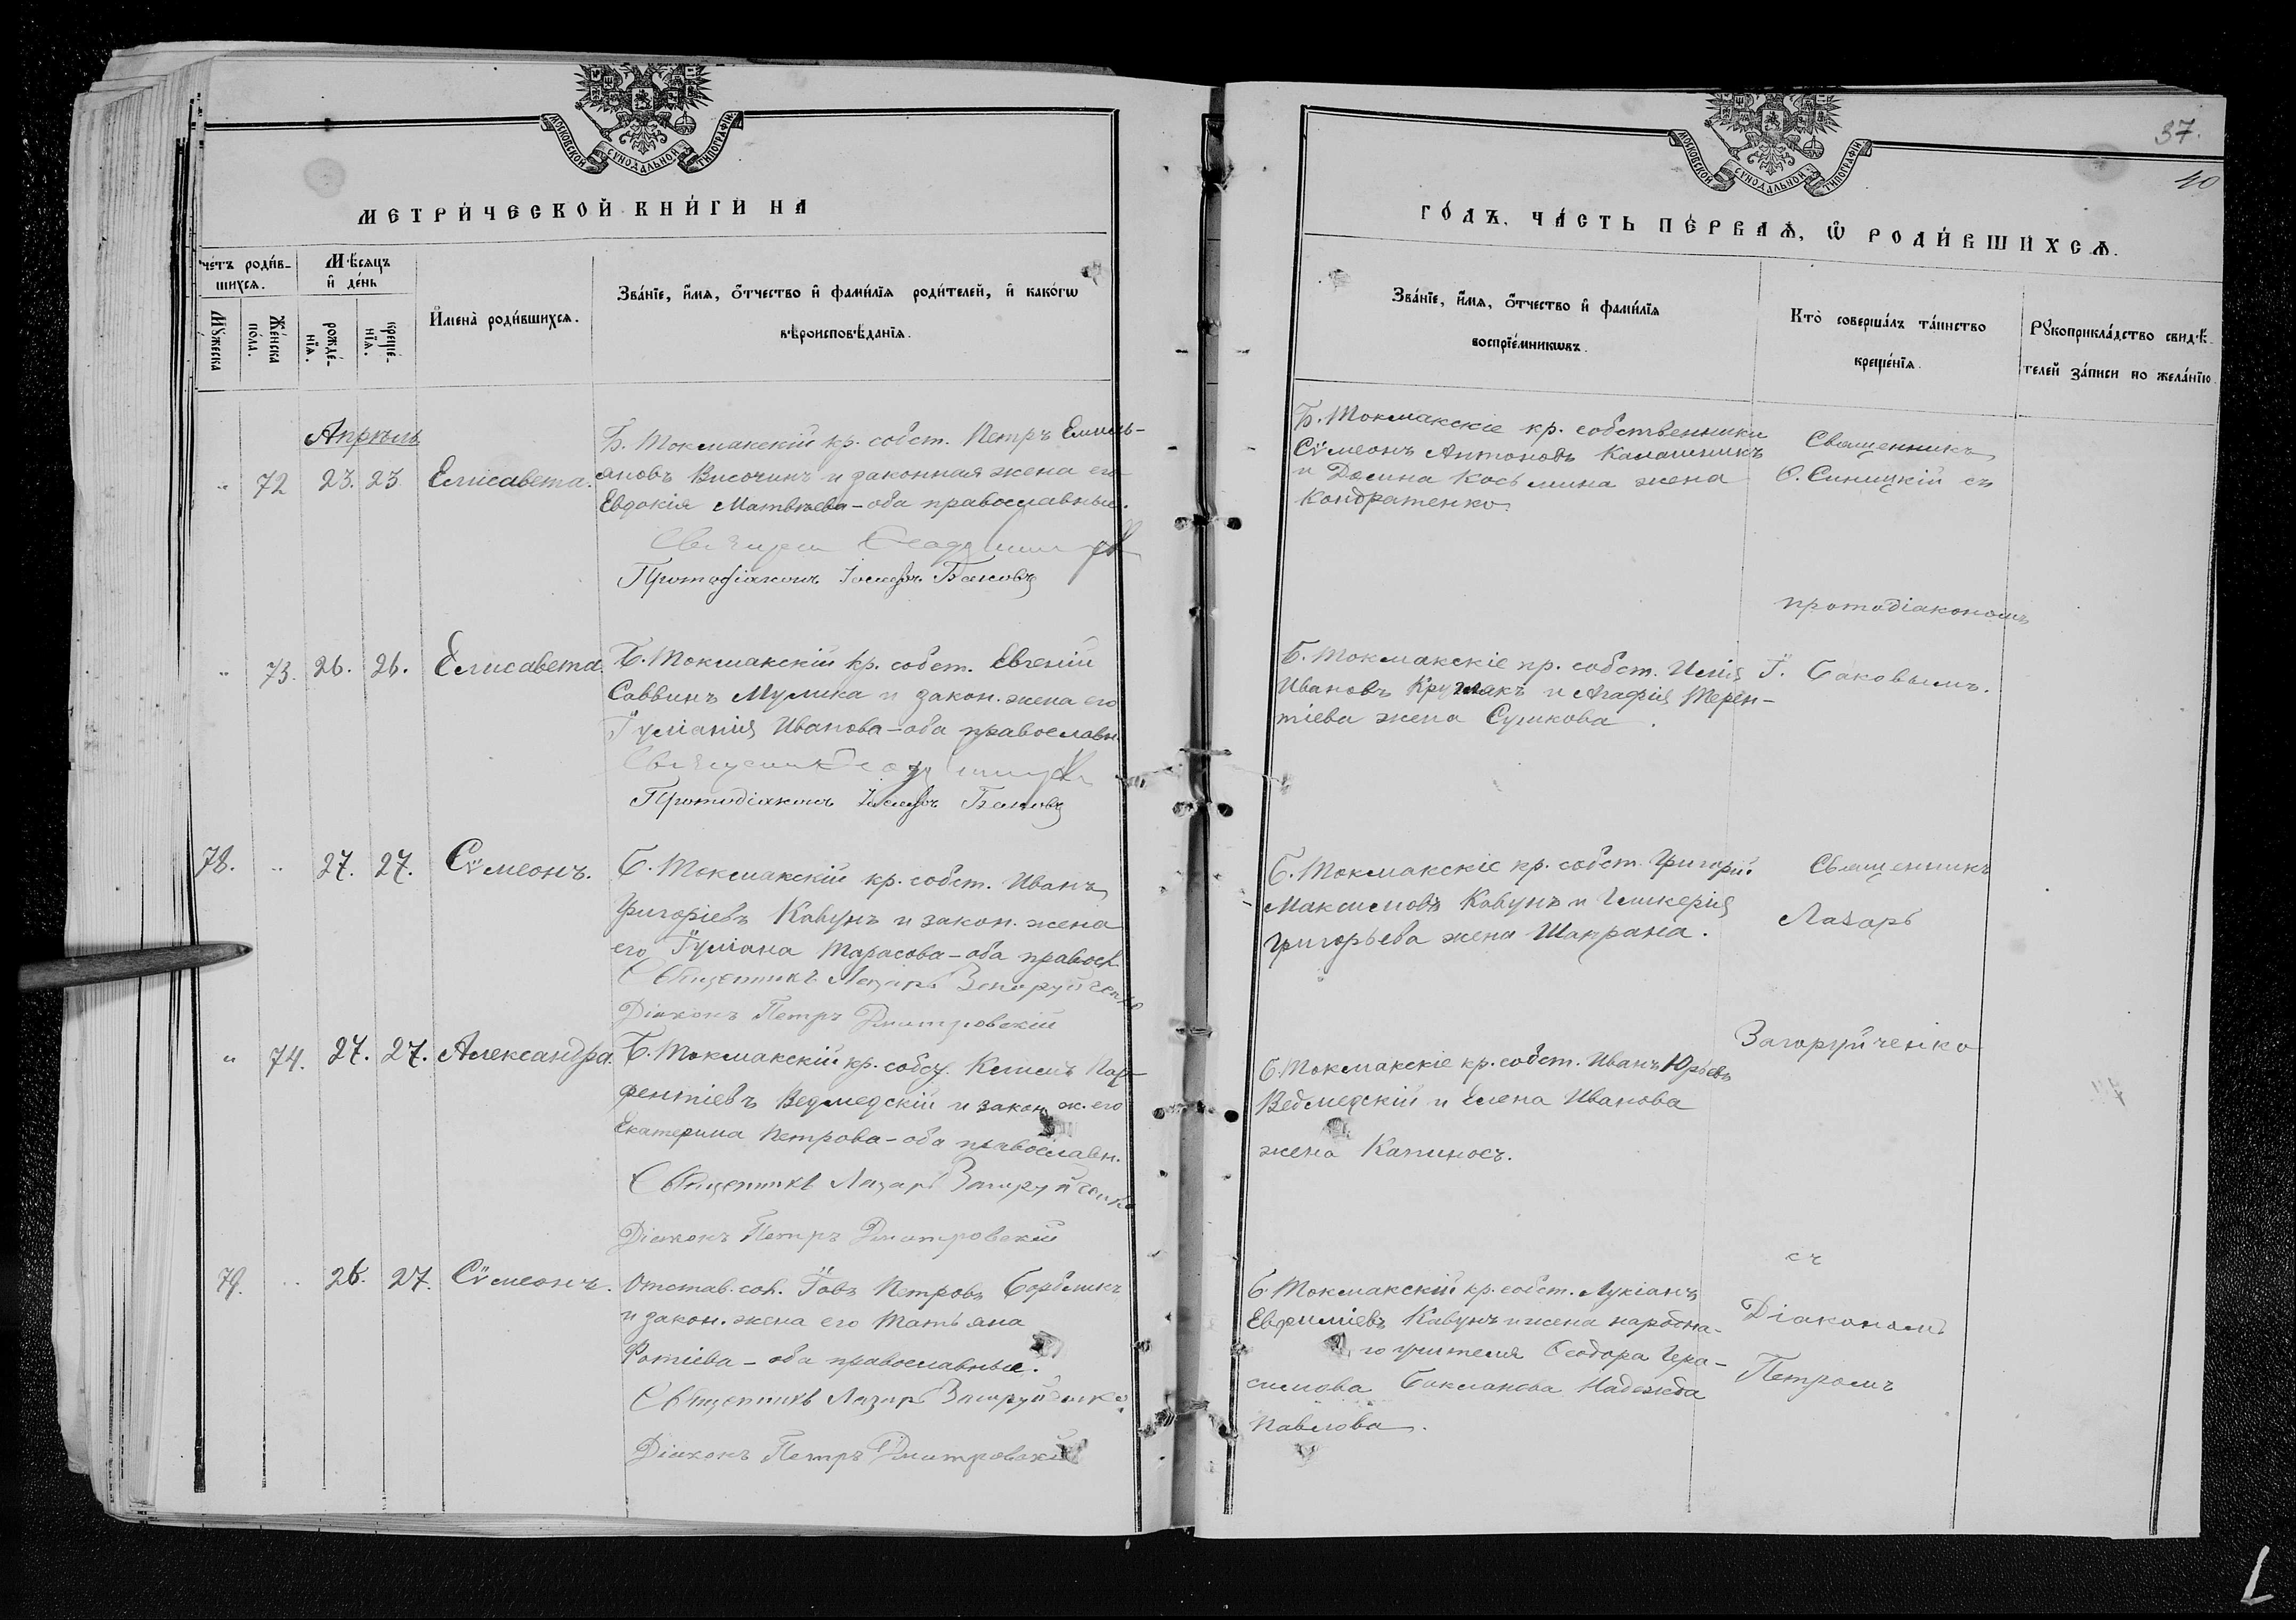 МОСКОВСКОЙ СѴНОДАЛЬНОЙ ТИПОГРАФІИ
МЕТРИ́ЧЕСКОЙ КНИ́ГИ НА
че́тъ роди́в-
шихся.
Мѣ́сяцъ
и҆ де́нь
Мꙋ́жеска
Же́нска
по́ла.
рожде́-
нїѧ.
креще́-
нїѧ.
И҆мена̀ роди́вшихся.
Зва́нїе, и҆́мѧ, ѻ҆́тчество и҆ фами́лїѧ роди́телей, и҆ како́гѡ
вѣроисповѣ́данїѧ.
Апрѣль
72 23. 23 Елисавета.
Б. Токмакскій кр. собст. Петръ Емель-
яновъ Височинъ и законная жена его
Евдокія Матвѣева - оба православные.
Протодіаконъ Іосифъ Баковъ
73. 26. 26. Елисавета
Б. Токмакскій кр. собст. Евгеній
Саввинъ Мулика и закон. жена его
Іуліанія Иванова - оба православн.
Протодіаконъ Іосифъ Баковъ
78. 27. 27. Сѵмеонъ.
Б. Токмакскій кр. собст. Иванъ
Григоріевъ Кавунъ и закон. жена
его Іуліана Тарасова - оба правосл.
Священникъ Лазарь Загоруйченко
Діаконъ Петръ Дмитровскій
74. 27. 27. Александра.
Б. Токмакскій кр. собст. Пар-
фентіевъ Ведмедскій и закон. ж. его
Екатерина Петрова - оба православн.
Священникъ Лазарь Загоруйченко
Діаконъ Петръ Дмитровскій
79. 26. 27. Сѵмеонъ.
Отстав. сол. Іовъ Петровъ
и закон. жена его Татьяна
Фотіева - оба православные.
Священникъ Лазарь Загоруйченко
Діаконъ Петръ Дмитровскій
МОСКОВСКОЙ СѴНОДАЛЬНОЙ ТИПОГРАФІИ
37.
40
ГО́ДЪ, ЧА́СТЬ ПЕ́РВАѦ, Ѿ РОДИ́ВШИХСѦ.
Зва́нїе, и҆́мѧ, ѻ҆́тчество и҆ фами́лїѧ
воспрїе́мникѡвъ.
Кто̀ соверша́лъ та́инство
креще́нїѧ.
Рꙋкоприкла́дство свидѣ́-
телей за́писи по жела́нїю.
Б. Токмакскіе кр. собственники
Сѵмеонъ Антоновъ Калашникъ
и Домна Косьмина жена
Кондратенко.
Священникъ
Ѳ. Синицкій съ
протодіакономъ
І. Баковымъ.
Б. Токмакскіе кр. собст. Илія
Ивановъ и Агафія Терен-
тіева жена Сушкова.
Б. Токмакскіе кр. собст. Григорій
Максимовъ Кавунъ и Гликерія
Григорьева жена Шапрана.
Священникъ
Лазарь
Загоруйченко
Б. Токмакскіе кр. собст. Иванъ Юрьевъ
Ведмедскій и Елена Иванова
жена Капиносъ.
съ
Діакономъ
Петромъ
Б. Токмакскій кр. собст. Лукіанъ
Евфиміевъ Кавунъ и жена народна-
го учителя Ѳеодора Гера-
симова Бакланова Надежда
Павлова.